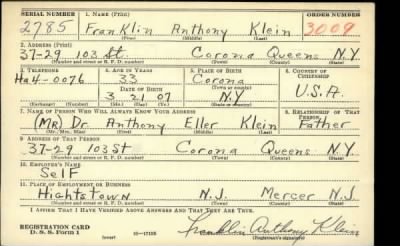 SERIAL NUMBER 1. NAME (Print) ORDER NUMBER
2785 Franklin Anthony Klein 3009
(First) (Middle) (Last)
2. ADDRESS (Print)
37-29 103 St. Corona Queens N.Y.
(Number and street or R. F. D. number) (Town) (County) (State)
3. TELEPHONE 4. AGE IN YEARS 5. PLACE OF BIRTH 6. COUNTRY OF CITIZENSHIP
Ha4-0076 33 Corona
DATE OF BIRTH (Town or county)
3 21 07 N.Y. U.S.A.
(Exchange) (Number) (Mo.) (Day) (Yr.) (State or country)
7. NAME OF PERSON WHO WILL ALWAYS KNOW YOUR ADDRESS 8. RELATIONSHIP OF THAT PERSON
(Mr) Dr. Anthony Eller Klein Father
(Mr., Mrs., Miss) (First) (Middle) (Last)
9. ADDRESS OF THAT PERSON
37-29 103 St Corona Queens N.Y.
(Number and street or R. F. D. number) (Town) (County) (State)
10. EMPLOYER'S NAME
Self
11. PLACE OF EMPLOYMENT OR BUSINESS
Hightstown N.J. Mercer N.J.
(Number and street or R. F. D. number) (Town) (County) (State)
I AFFIRM THAT I HAVE VERIFIED ABOVE ANSWERS AND THAT THEY ARE TRUE.
REGISTRATION CARD
D. S. S. Form 1 (over) 16—17105 Franklin Anthony Klein
(Registrant's signature)